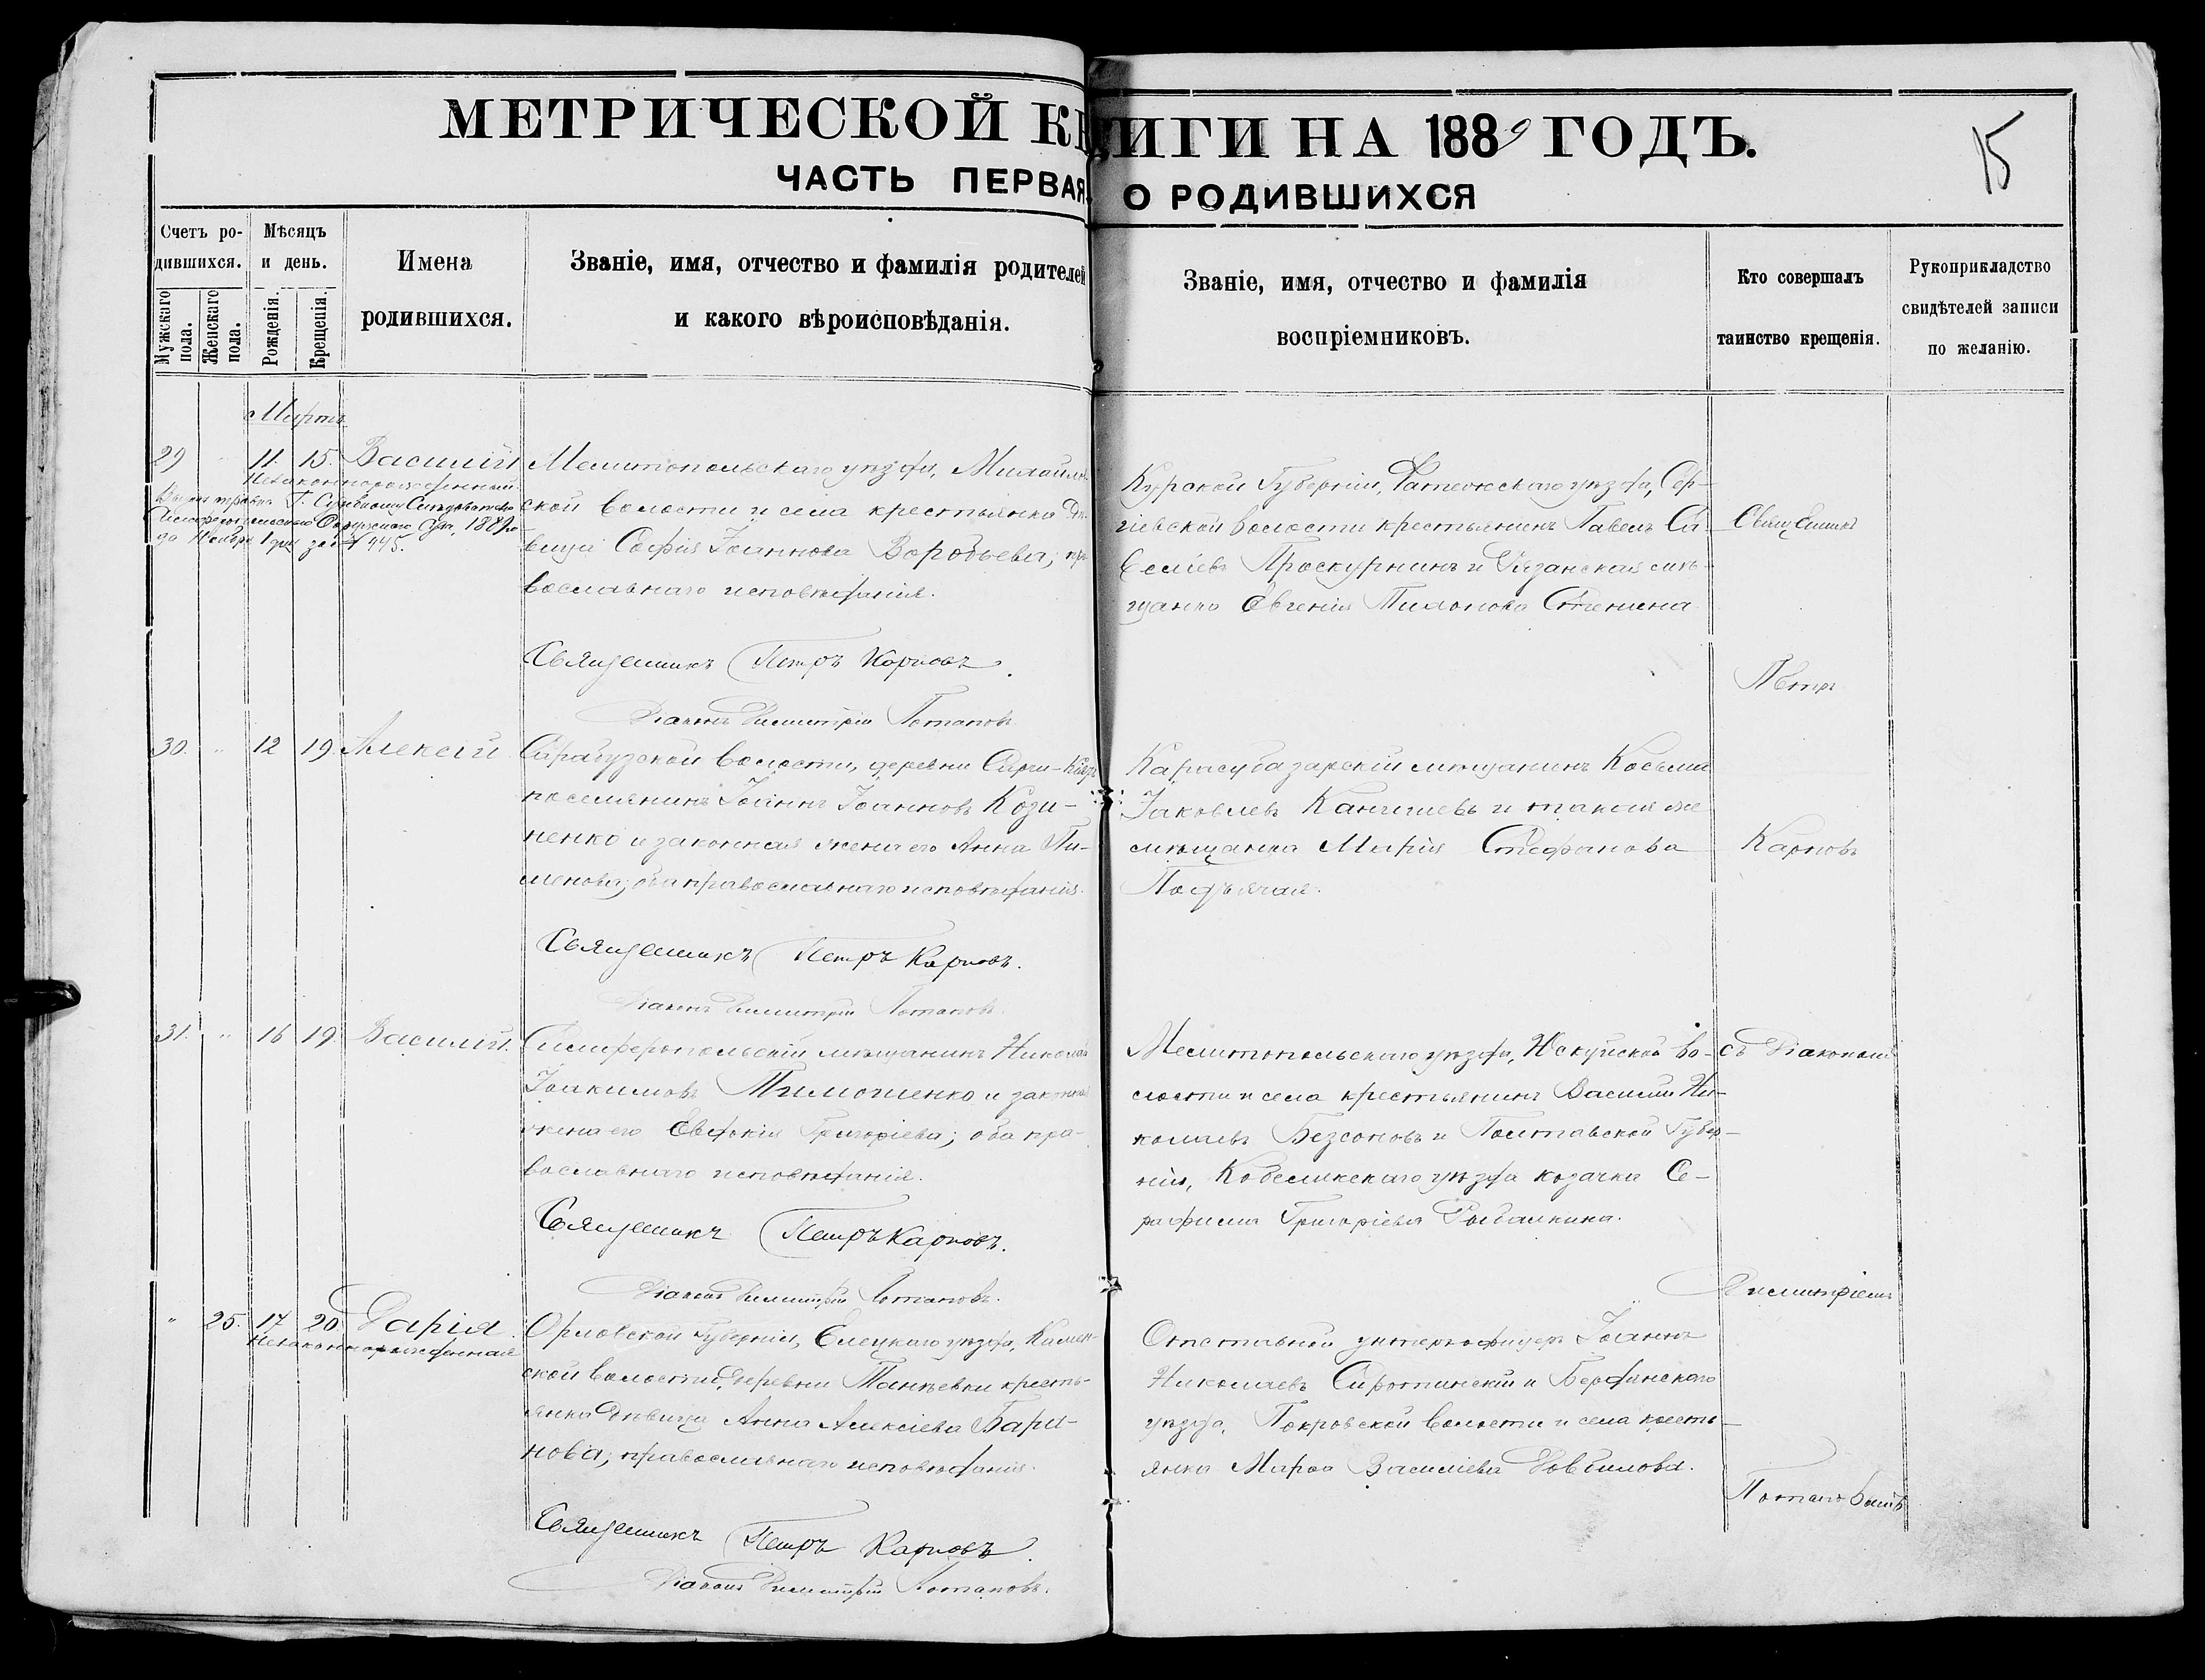 МЕТРИЧЕСКОЙ КНИГИ НА 1889 ГОДЪ.
15
ЧАСТЬ ПЕРВАЯ, О РОДИВШИХСЯ
Счетъ ро-
дившихся.
Мужскаго пола.
Женскаго пола.
Мѣсяцъ
и день.
Рожденія.
Крещенія.
Имена
родившихся.
Званіе, имя, отчество и фамилія родителей
и какого вѣроисповѣданія.
Званіе, имя, отчество и фамилія
воспріемниковъ.
Кто совершалъ
таинство крещенія.
Рукоприкладство
свидѣтелей записи
по желанію.
Мартъ
29 " 11. 15. Василій
Незаконнорожденный
Г. Судебному Слѣдователю
Симферопольскаго Окружнаго Суда, 1889
Ноября 1 дня за № 445.
Мелитопольскаго уѣзда, Михайлов-
ской волости и села крестьянка дѣ-
вица Софія Іоаннова Воробьева; пра-
вославнаго исповѣданія.
Священникъ Петръ Карповъ.
Діаконъ Димитрій Потаповъ
Курской Губерніи, Фатежскаго уѣзда, Сер-
гіевской волости крестьянинъ Павелъ Са-
веліевъ Проскурнинъ и Казанская мѣ-
щанка Евгенія Тихонова Стенина
Священникъ
Петръ
30. " 12 19. Алексій
Сарабузской волости, деревни Сарчи-Кіятъ
поселянинъ Іоаннъ Іоанновъ Кози-
ненко и законная жена его Анна Пи-
менова; оба православнаго исповѣданія.
Священникъ Петръ Карповъ.
Діаконъ Димитрій Потаповъ.
Карасубазарскій мѣщанинъ Косьма
Іаковлевъ и такая же
мѣщанка Марія Стефанова
Подъячая.
Карповъ
31. " 16 19. Василій.
Симферопольскій мѣщанинъ Николай
Іоакимовъ Тимошенко и законная
жена его Евдокія Григоріева; оба пра-
вославнаго исповѣданія.
Священникъ Петръ Карповъ.
Діаконъ Димитрій Потаповъ.
Мелитопольскаго уѣзда, во-
лости и села крестьянинъ Василій Ни-
колаевъ Безсоновъ и Полтавской Губер-
ніи, Кобелякскаго уѣзда козачка Се-
рафима Григоріева Рыбалкина.
съ Діакономъ
Димитріемъ
" 25. 17 20. Дарія.
Незаконнорожденная
Орловской Губерніи, Елецкаго уѣзда, Камен-
ской волости, деревни Танѣевки кресть-
янка дѣвица Анна Алексіева Бари-
нова; православнаго исповѣданія.
Священникъ Петръ Карповъ.
Діаконъ Димитрій Потаповъ.
Отставной унтеръ-офицеръ Іоаннъ
Николаевъ Сиротинскій и Бердянскаго
уѣзда, Покровской волости и села кресть-
янка Марѳа Василіева Довбилова.
Потаповымъ